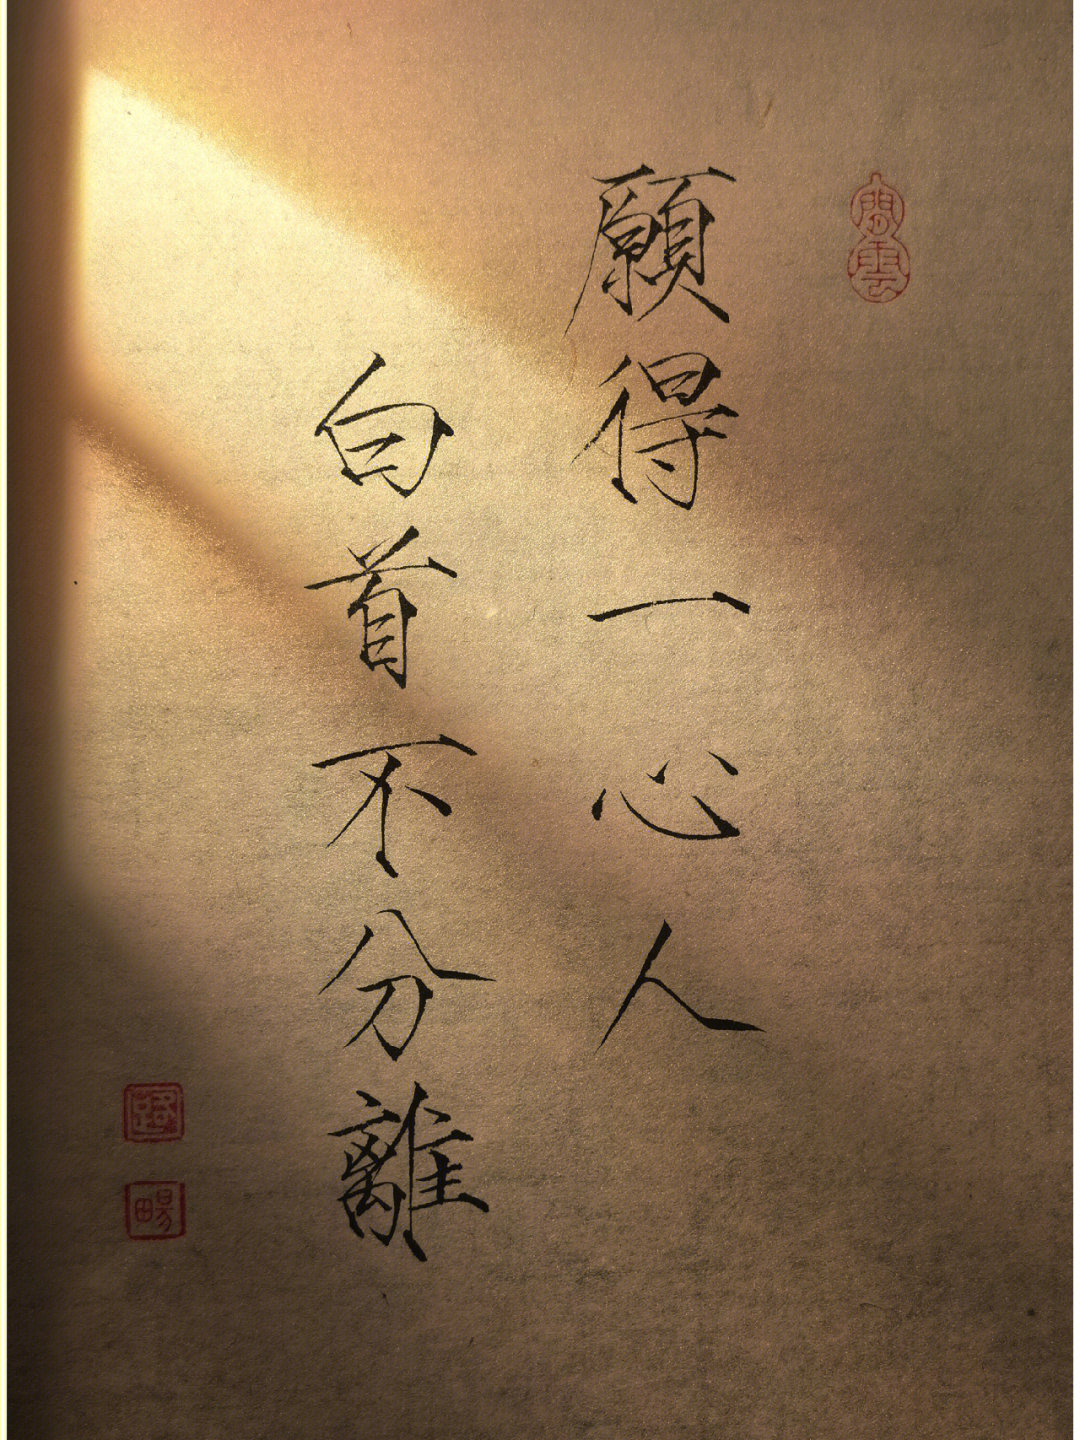 願得一心人
白首不分離
閒雲